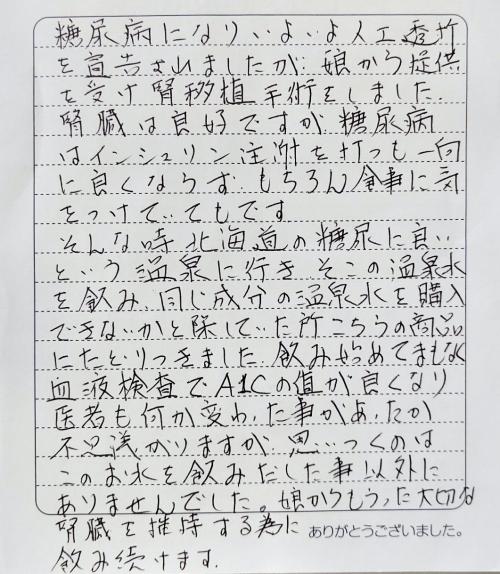 糖尿病になりいよいよ人工透析
を宣告されましたが、娘から提供
を受け腎移植手術をしました。
腎臓は良好ですが糖尿病
はインシュリン注射を打つも一向
に良くならず、もちろん食事に気
をつけていてもです
そんな時北海道の糖尿に良い
という温泉に行き そこの温泉水
を飲み、同じ成分の温泉水を購入
できないかと探していた所こちらの商品
にたどりつきました。飲み始めてまもなく
血液検査でA1Cの値が良くなり
医者も何か変わった事があったか
不思議がりますが、思いつくのは
このお水を飲みだした事以外に
ありませんでした。娘からもらった大切な
腎臓を維持する為に
ありがとうございました。
飲み続けます。